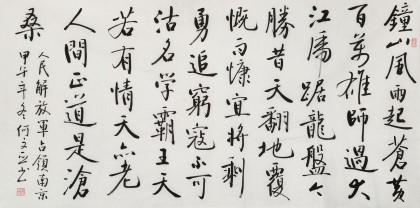 鐘山風雨起蒼黃
百萬雄師過大
江虎踞龍盤今
勝昔天翻地覆
慨而慷宜將剩
勇追窮寇不可
沽名学霸王天
若有情天亦老
人間正道是滄
桑
人民解放軍占領南京
甲午年冬何文书